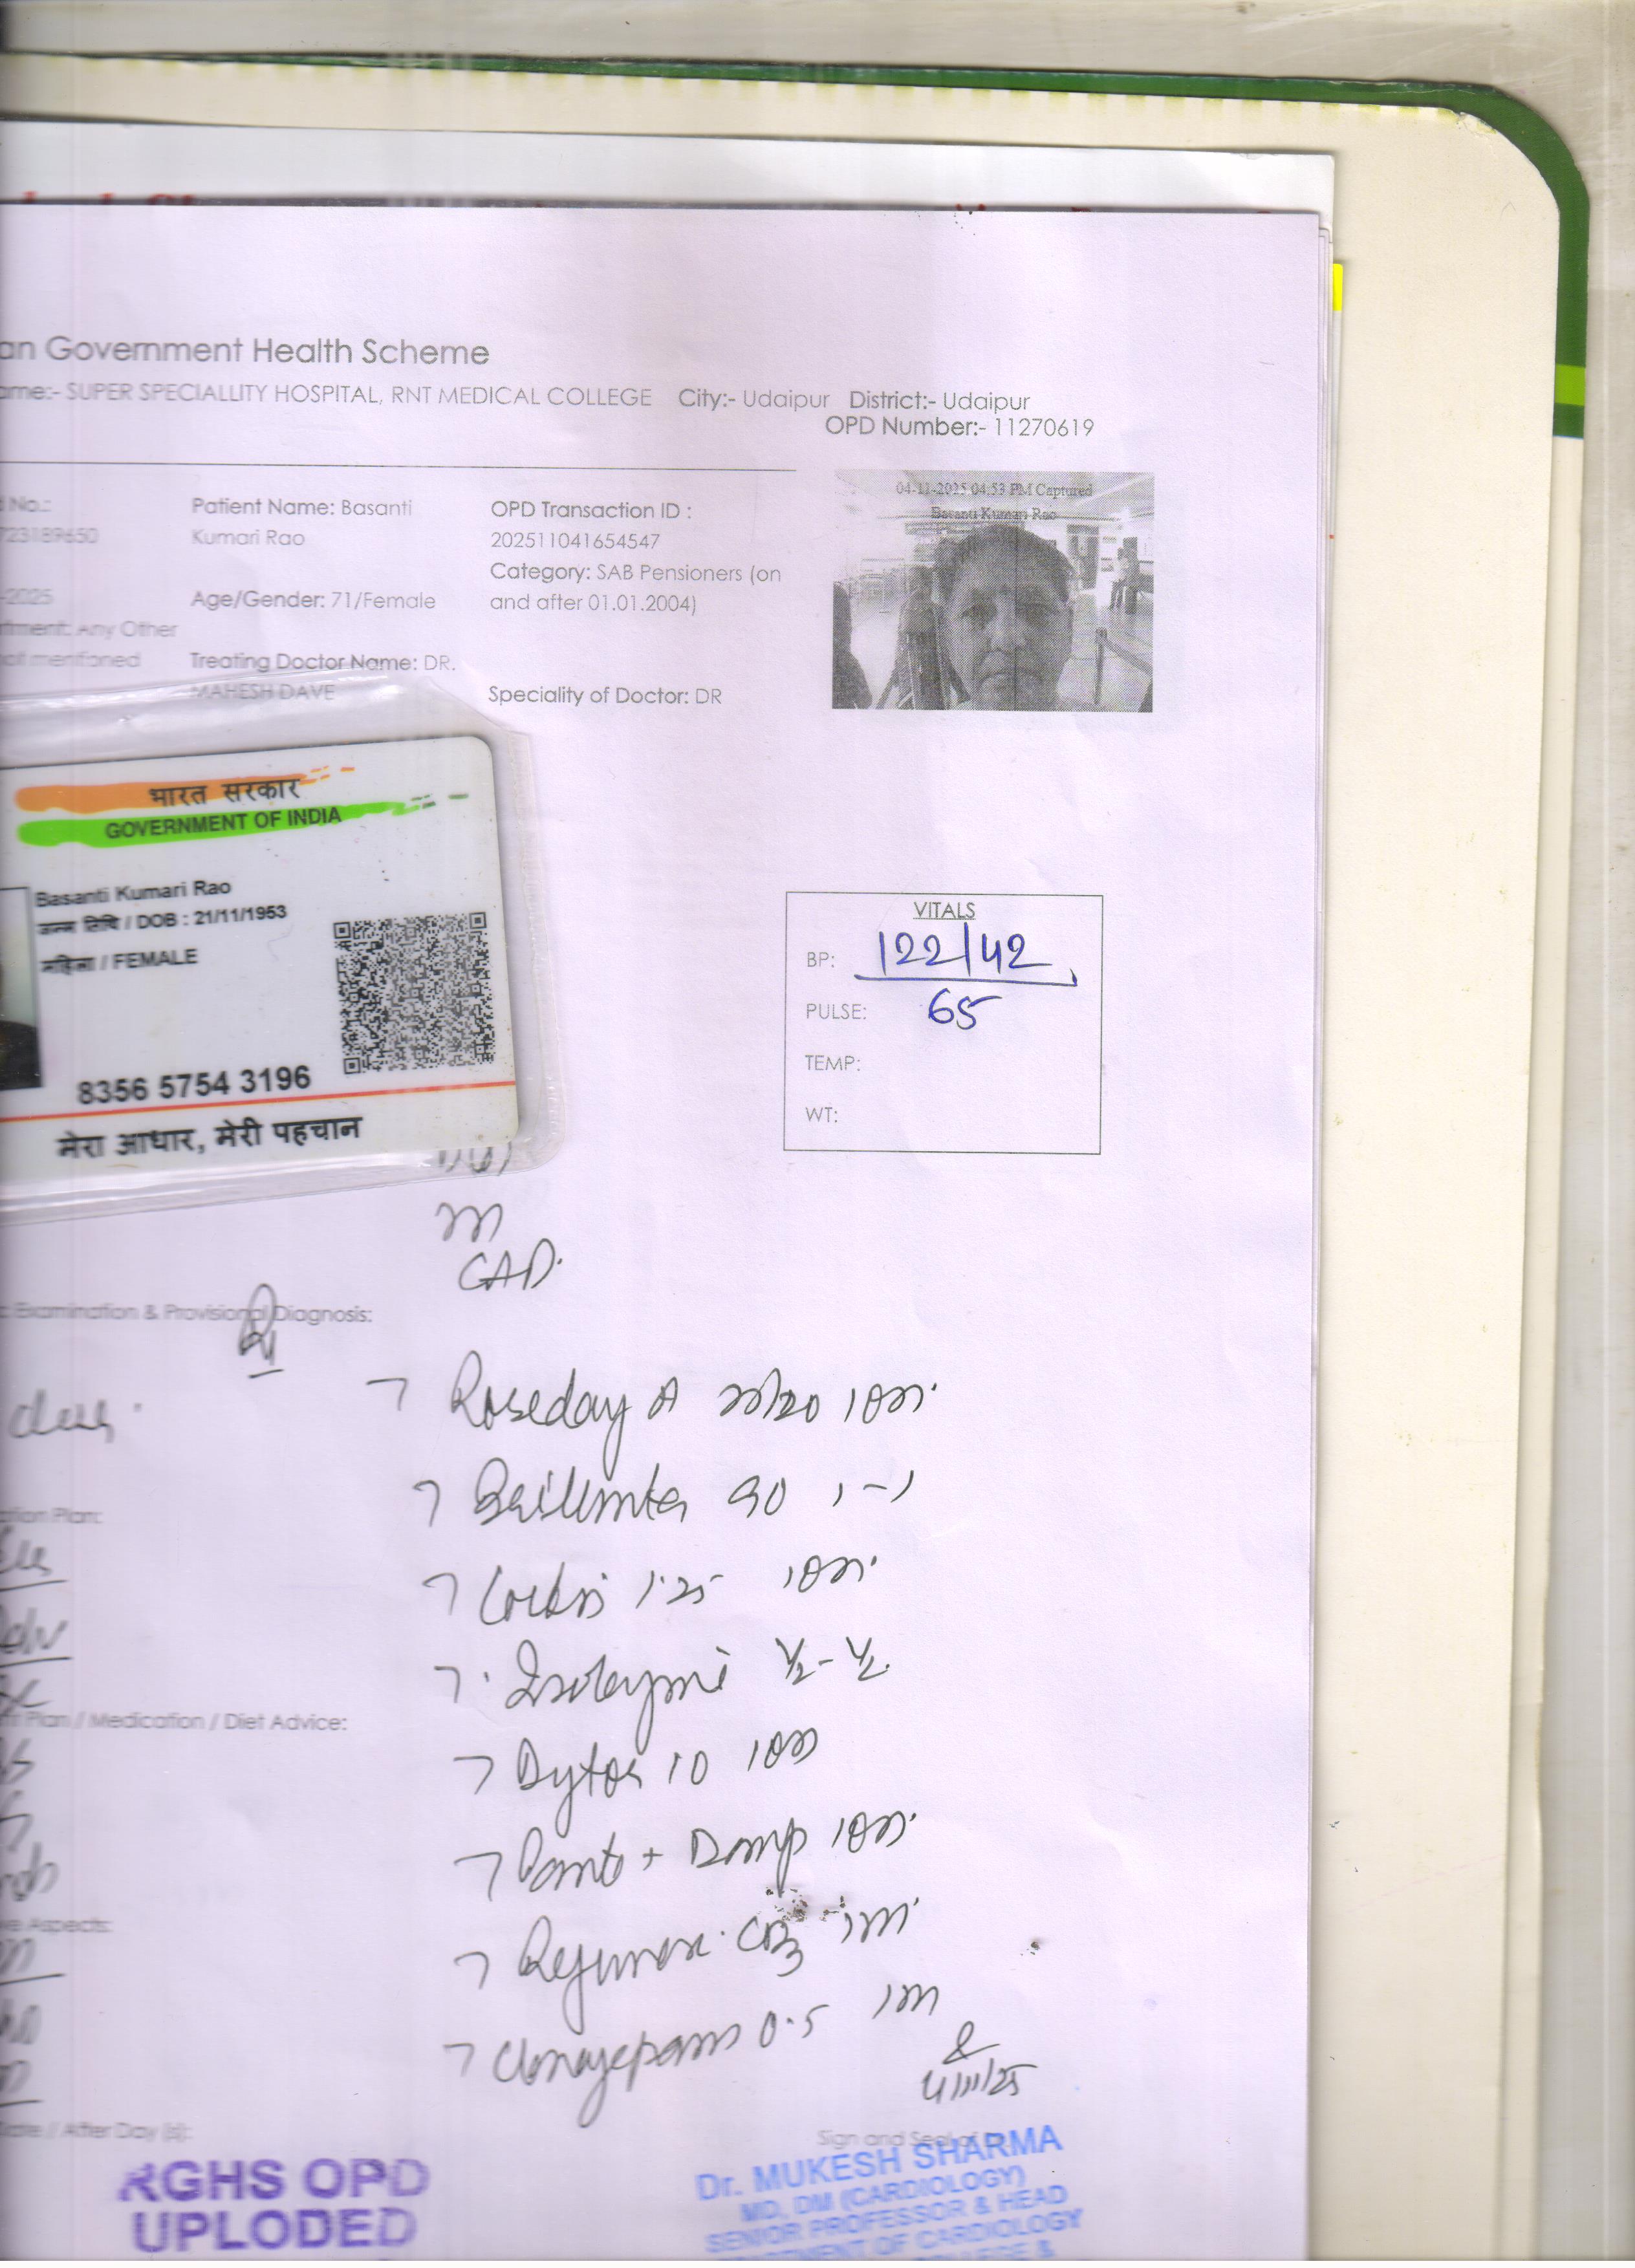 an Government Health Scheme
ame:- SUPER SPECIALLITY HOSPITAL, RNT MEDICAL COLLEGE City:- Udaipur District:- Udaipur
OPD Number:- 11270619
04-11-2025 04:53 PM Captured
Basanti Kumari Rao
No.:
723189650
-2025
tment: Any Other
not mentioned
Patient Name: Basanti
Kumari Rao
Age/Gender: 71/Female
Treating Doctor Name: DR.
MAHESH DAVE
OPD Transaction ID :
202511041654547
Category: SAB Pensioners (on
and after 01.01.2004)
Speciality of Doctor: DR
भारत सरकार
GOVERNMENT OF INDIA
Basanti Kumari Rao
जन्म तिथि / DOB : 21/11/1953
महिला / FEMALE
8356 5754 3196
मेरा आधार, मेरी पहचान
VITALS
BP: 122/42
PULSE: 65
TEMP:
WT:
CAD.
Examination & Provisional Diagnosis:
Roseday A
Brilinta 90 1-1
1.25
1/2 - 1/2
Plan / Medication / Diet Advice:
Dytor 10
Panto + Domp
Rejunex CD3
Clonazepam 0.5
4/11/25
Aspects:
Date / After Day (s):
Sign and Seal of
RGHS OPD
UPLODED
Dr. MUKESH SHARMA
MD, DM (CARDIOLOGY)
SENIOR PROFESSOR & HEAD
DEPARTMENT OF CARDIOLOGY